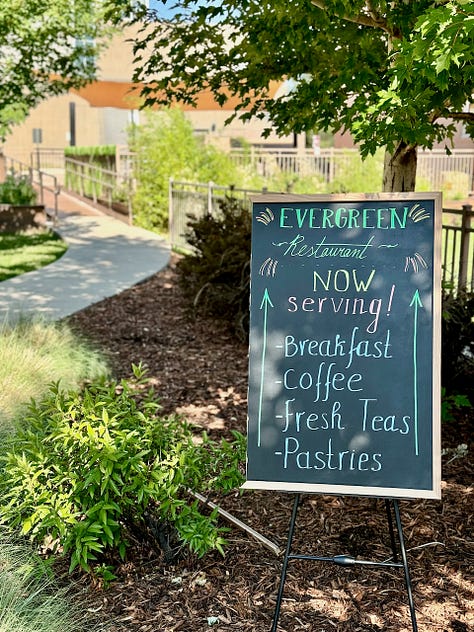 EVERGREEN
Restaurant
NOW
serving!
-Breakfast
-Coffee
-Fresh Teas
-Pastries